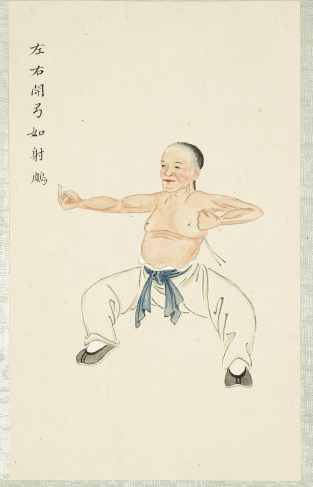 左右開弓如射鵰